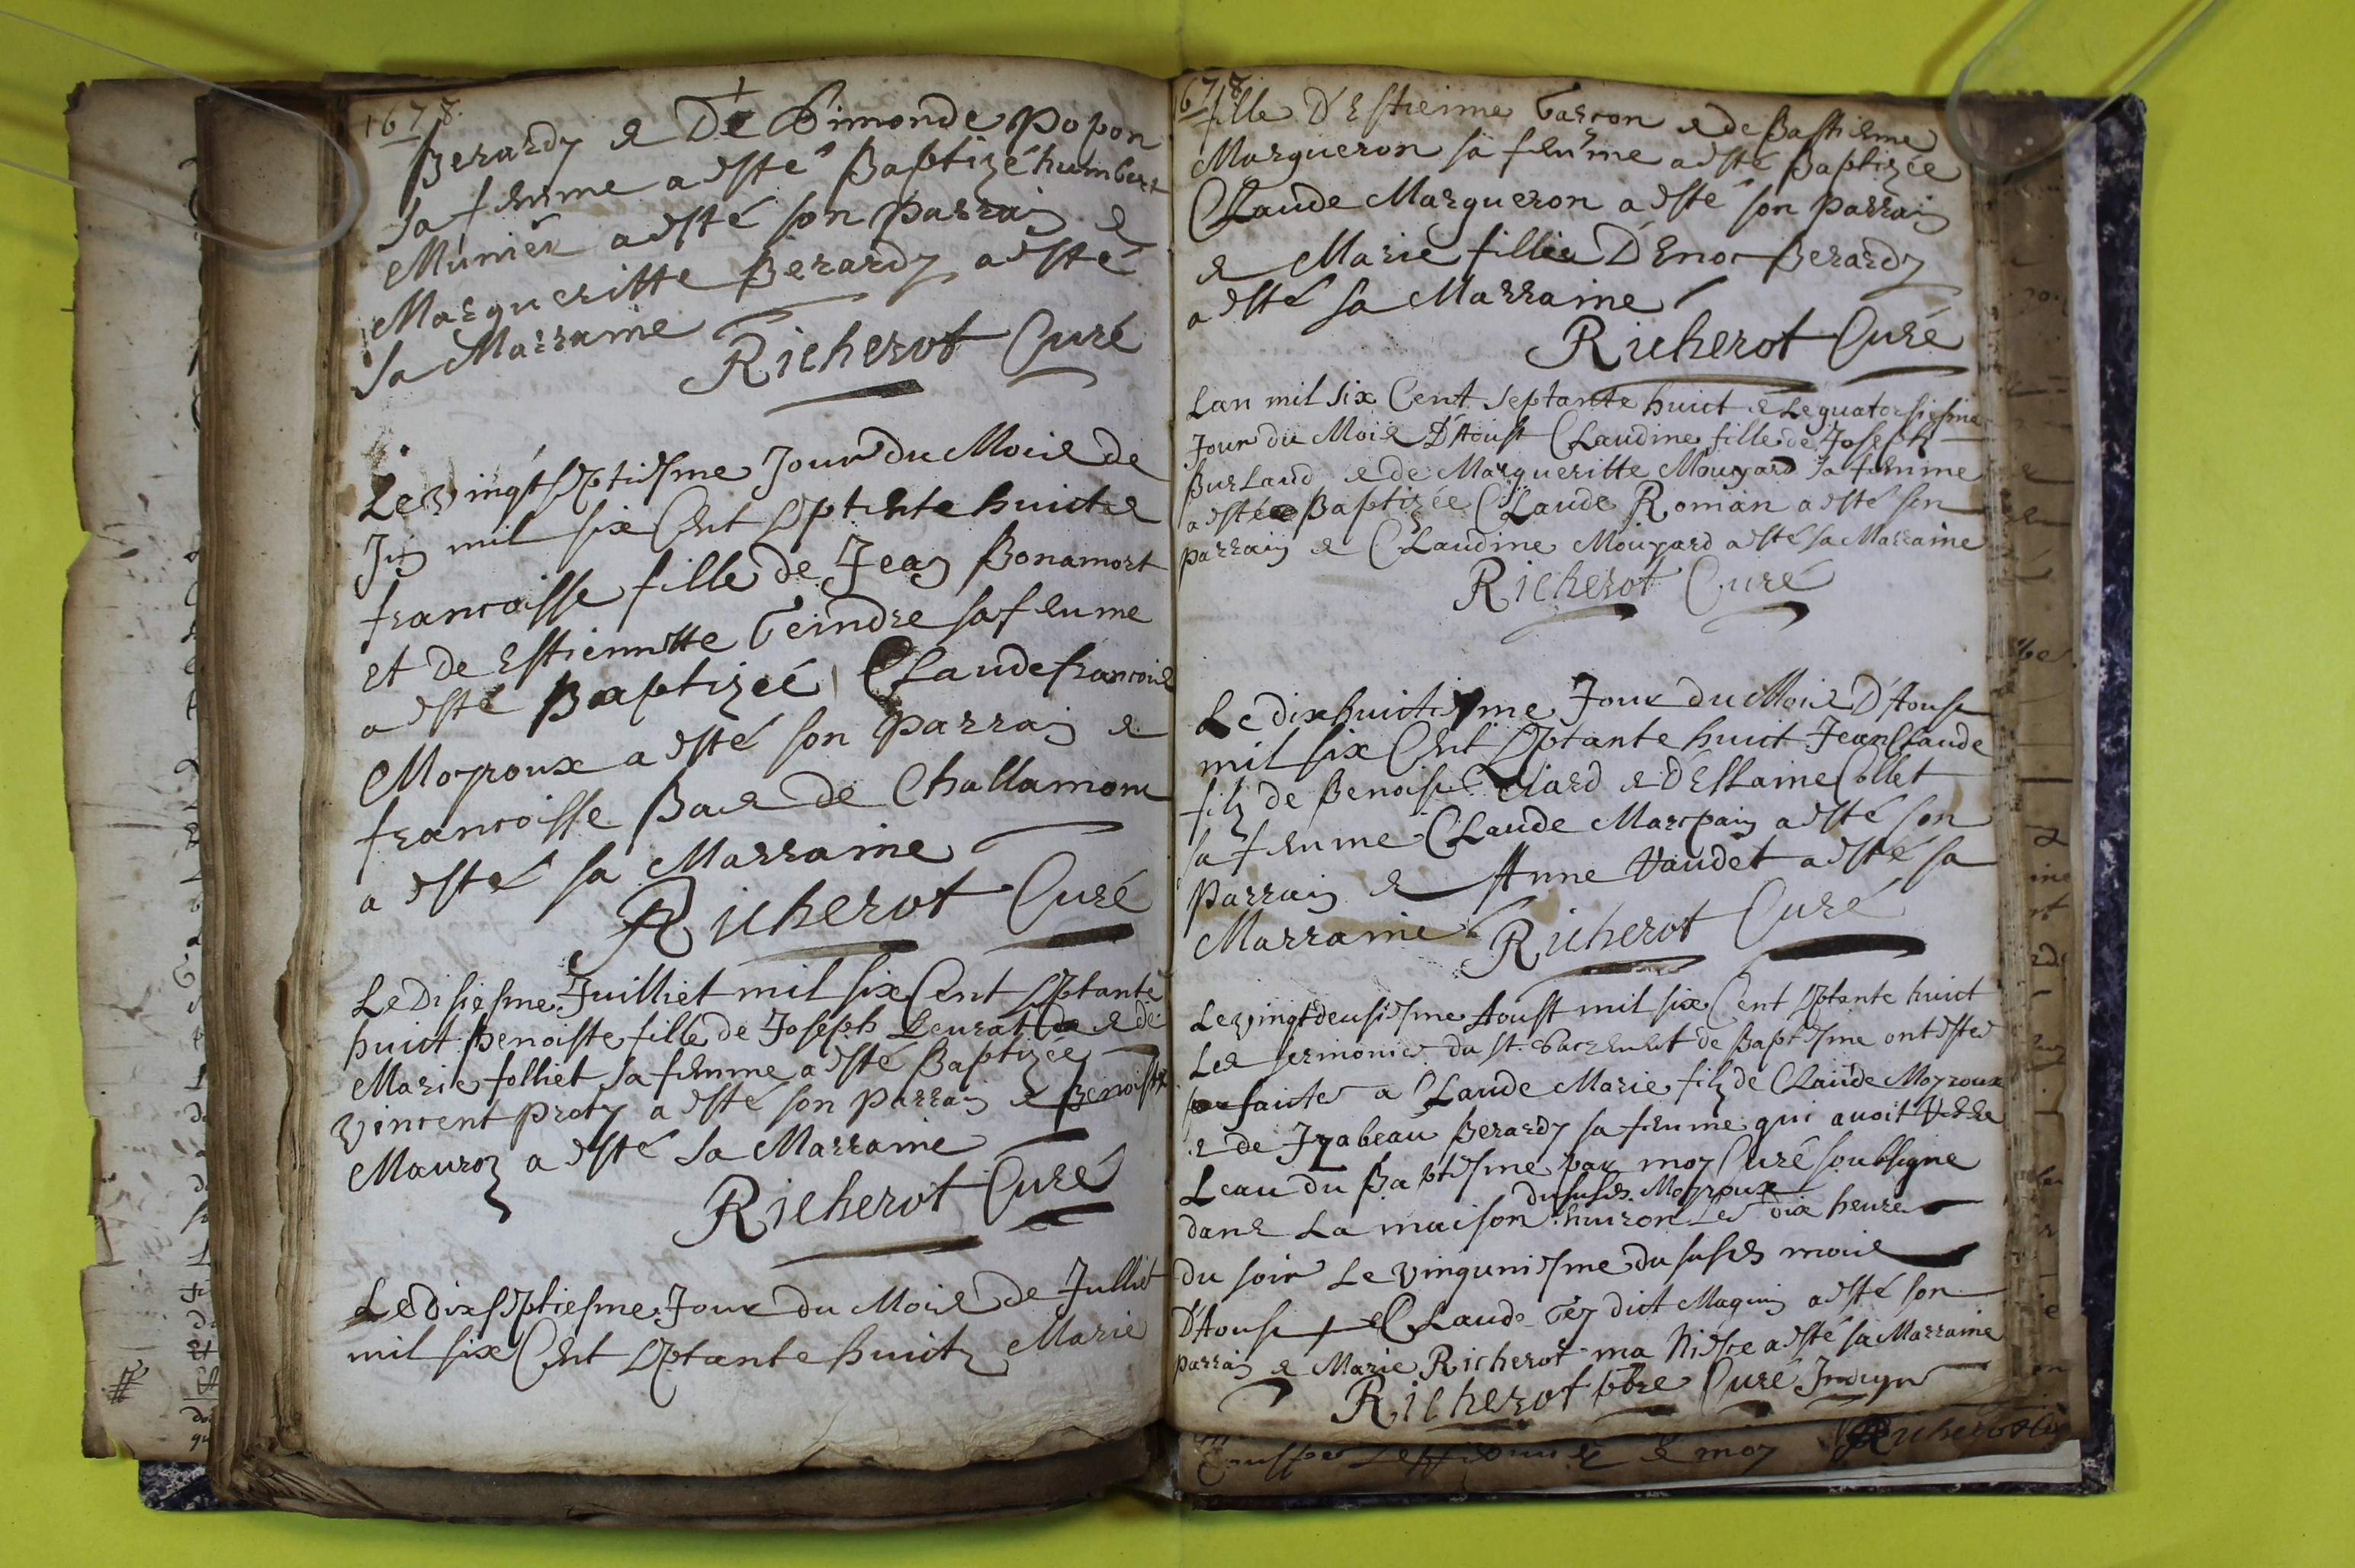 1678
Berardy & De Pimonde popon
sa femme a esté Baptizé humbert
Munier a esté son parrain &
Margueritte Berardy a esté
sa Marraine
Richerot Curé
Le vingtseptiesme Jour du Mois de
Juin mil six Cent septente huict &
francoisse fille de Jean Bonamort
et de Estiennette Teindre sa femme
a esté Baptizeé Claude francois
Moyroux a esté son parrain &
francoisse Bas de Challamont
a esté sa Marraine
Richerot Curé
Le Disiesme Juilliet mil six Cent septante
huict Benoiste fille de Joseph Leurat & de
Marie folliet sa femme a esté Baptizée
vincent proty a esté son parrain & Benoiste
Mauroz a esté sa Marraine
Richerot Curé
Le dixseptiesme Jour du Mois de Julliet
mil six Cent septante huict Marie
1678
fille D'Estienne Garcon & de Bastienne
Margueron sa femme a esté Baptizée
Claude Margueron a esté son parrain
& Marie fille D'Enoc Berardy
a esté sa Marraine
Richerot Curé
Lan mil six Cent septante huict & Le quatorsiesme
Jour du Mois D'Aoust Claudine fille de Joseph
Burland & de Margueritte Mougard sa femme
a esté Baptizée Claude Roman a esté son
parrain & Claudine Mougard a esté sa Marraine
Richerot Curé
Le dixhuictiesme Jour du Mois D'Aoust
mil six Cent septante huict Jean Claude
filz de Benoist Clard & D'Eslaine Collet
sa femme Claude Marcpain a esté son
parrain & Anne Vaudet a esté sa
Marraine Richerot Curé
Le vingtdeusiesme Aoust mil six Cent septante huict
Les sermonies du st. Sacrement de Baptesme ont estes
faictes a Claude Marie filz de Claude Moyroux
& de Izabeau Berardy sa femme qui avoit
Leau du Baptesme par moy Curé soubsigne
dans La maison dususd. Moyroux huiron Les dix heures
du soir Le vinguniesme du susd. mois
D'Aoust & Claude Gey dict Maguin a esté son
parrain & Marie Richerot ma Niesce a esté sa Marraine
Richerot pbre Curé Indigne
& moy Richerot